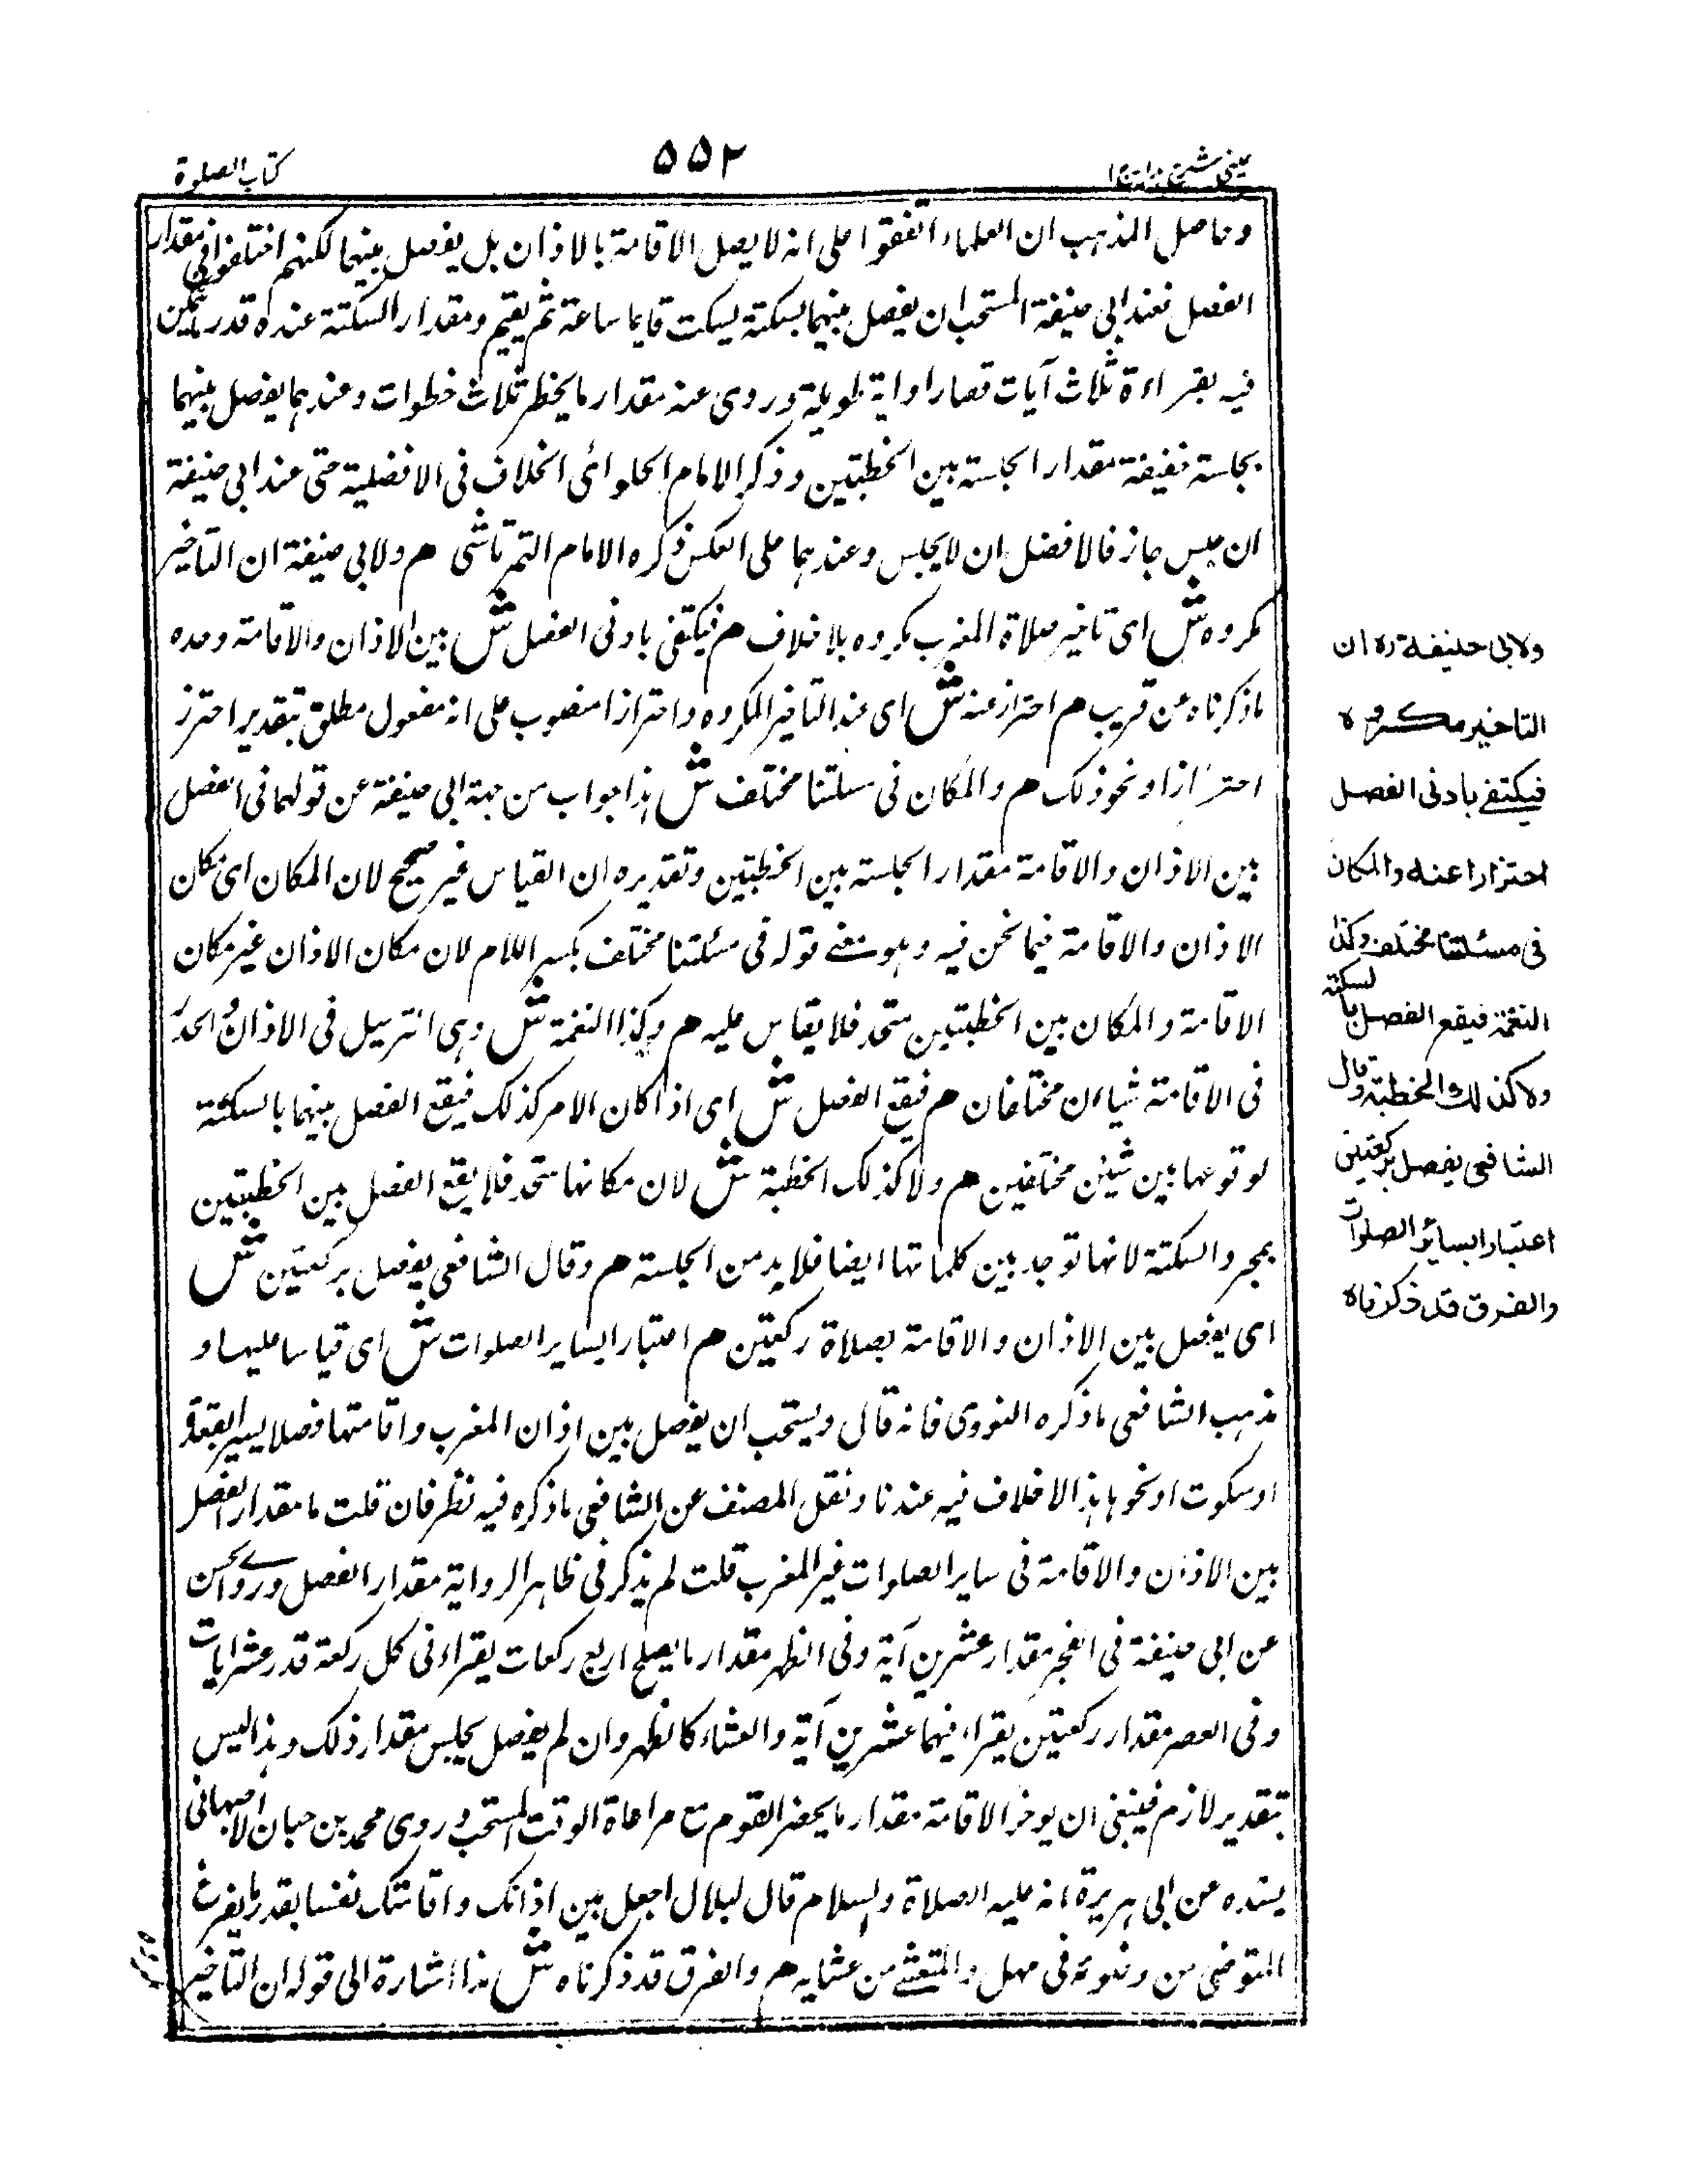 عینی شرح ہدایہ ج ۱
۵۵۲
کتاب الصلوة
وحاصل المذہب ان العلماء اتفقوا علی انہ لا یصل الاقامة بالاذان بل یفصل بینہما لکنہم اختلفوا فی مقدار
الفصل فعند ابی حنیفة المستحب ان یفصل بینہما بسکتة یسکت قایما ساعة ثم یقیم ومقدار السکتة عندہ قدر ما یتمکن
فیہ بقراءة ثلاث آیات قصار او ایة طویلة وروی عنہ مقدار ما یخطو ثلاث خطوات وعندہما یفصل بینہما
بجلسة خفیفة مقدار الجلسة بین الخطبتین وذکر الامام الحلوائی الخلاف فی الافضلیة حتی عند ابی حنیفة
ان جلس جاز فالافضل ان لا یجلس وعندہما علی العکس ذکرہ الامام التمرتاشی م ولابی حنیفة ان التاخیر
مکروہ ش ای تاخیر صلاة المغرب مکروہ بلا خلاف م فیکتفی بادنی الفصل ش بین الاذان والاقامة وحدہ
ماذکرناہ عن قریب م احترازا عنہ ش ای عند التاخیر المکروہ واحترازا منصوب علی انہ مفعول مطلق بتقدیر احترز
احترازا او نحو ذلک م والمکان فی مسئلتنا مختلف ش ہذا جواب من جہة ابی حنیفة عن قولہما فی الفصل
بین الاذان والاقامة مقدار الجلسة بین الخطبتین وتقدیرہ ان القیاس غیر صحیح لان المکان ای مکان
الاذان والاقامة فیما نحن فیہ وہو معنے قولہ فی مسئلتنا مختلف بکسر اللام لان مکان الاذان غیر مکان
الاقامة والمکان بین الخطبتین متحد فلا یقاس علیہ م وکذا النغمة ش وہی الترسیل فی الاذان والحدر
فی الاقامة شیاءن مختلفان م فیقع الفصل ش ای اذا کان الامر کذلک فیقع الفصل بینہما بالسکتة
لوقوعہا بین شیئن مختلفین م ولا کذلک الخطبة ش لان مکانہا متحد فلا یقع الفصل بین الخطبتین
بمجرد السکتة لانہا توجد بین کلماتہا ایضا فلا بد من الجلسة م وقال الشافعی یفصل برکعتین ش
ای یفصل بین الاذان والاقامة بصلاة رکعتین م اعتبارا بسایر الصلوات ش ای قیاسا علیہا و
مذہب الشافعی ماذکرہ النووی فانہ قال ویستحب ان یفصل بین اذان المغرب واقامتہا فصلا یسیرا بقعدة
او سکوت او نحوہا ہذا لا خلاف فیہ عندنا ونقل المصنف عن الشافعی ماذکرہ فیہ نظر فان قلت ما مقدار الفصل
بین الاذان والاقامة فی سایر الصلوات غیر المغرب قلت لم یذکر فی ظاہر الروایة مقدار الفصل وروی الحسن
عن ابی حنیفة فی الفجر مقدار عشرین آیة وفی الظہر مقدار ما یصلی اربع رکعات یقراء فی کل رکعة قدر عشر ایات
وفی العصر مقدار رکعتین یقراء فیہما عشرین آیة والعشاء کالظہر وان لم یفصل یجلس مقدار ذلک وہذا لیس
بتقدیر لازم فینبغی ان یوخر الاقامة مقدار ما یحضر القوم مع مراعاة الوقت المستحب وروی محمد بن حبان الاصبہانی
یسندہ عن ابی ہریرة انہ علیہ الصلاة والسلام قال لبلال اجعل بین اذانک واقامتک نفسا بقدر ما یفرغ
المتوضی من وضوئہ فی مہل والمتعشے من عشایہ م والفرق قد ذکرناہ ش ہذا اشارة الی قولہ ان التاخیر
ولابی حنیفة رہ ان
التاخیر مکروہ
فیکتفے بادنی الفصل
احترازا عنہ والمکان
فی مسئلتنا مختلف وکذا
النغمة فیقع الفصل بالسکتة
ولا کذلک الخطبة وقال
الشافعی یفصل برکعتین
اعتبارا بسائر الصلوات
والفرق قد ذکرناہ